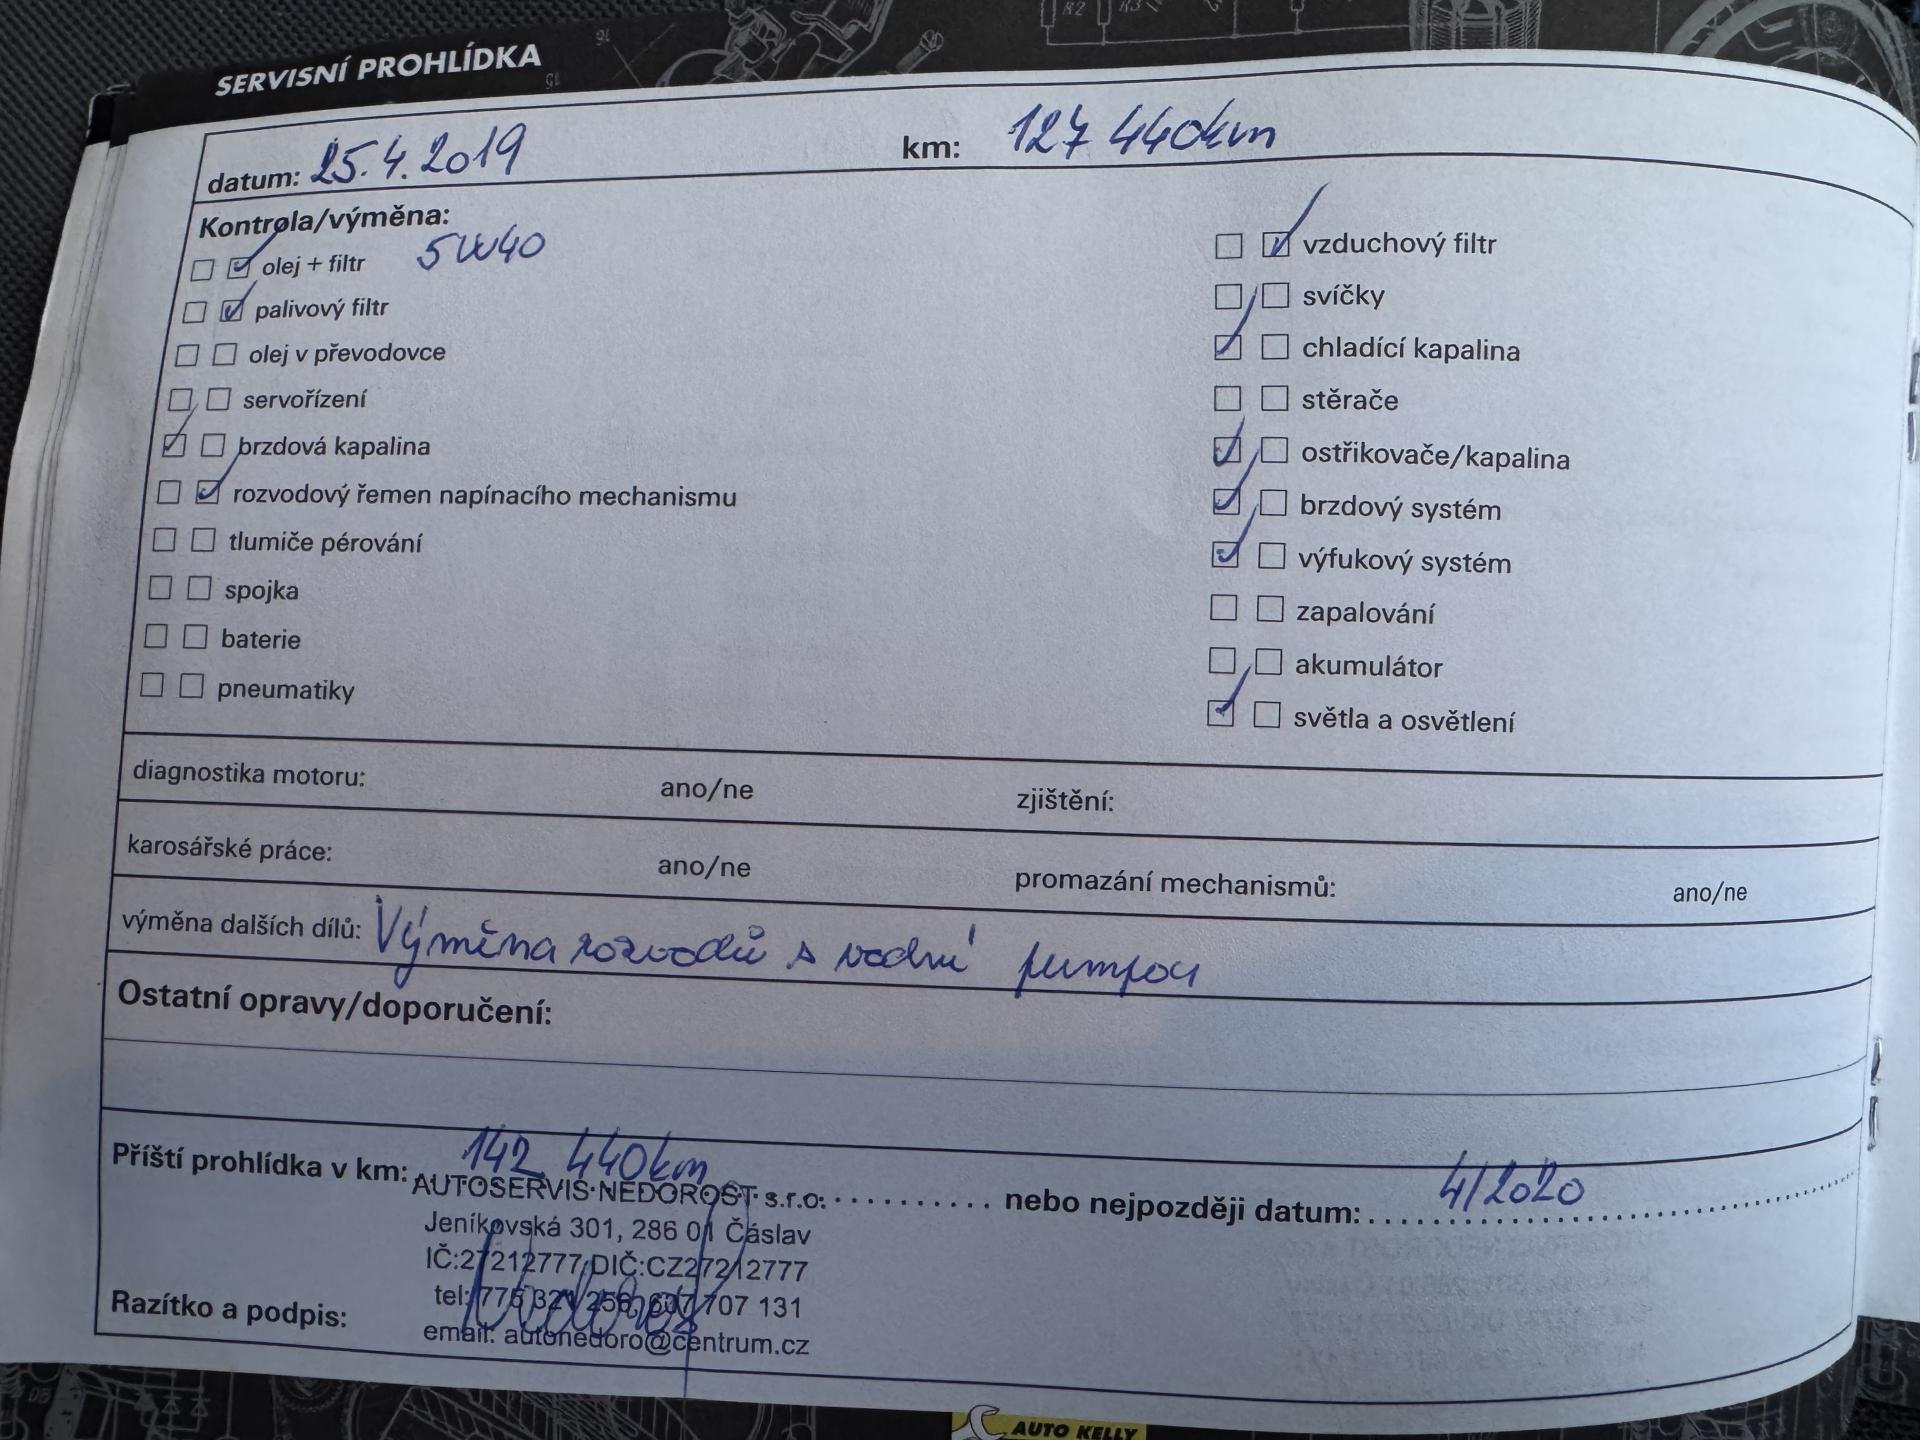 SERVISNÍ PROHLÍDKA
datum: 25.4.2019 km: 127 440km
Kontrola/výměna:
olej + filtr 5W40
palivový filtr
olej v převodovce
servořízení
brzdová kapalina
rozvodový řemen napínacího mechanismu
tlumiče pérování
spojka
baterie
pneumatiky
vzduchový filtr
svíčky
chladící kapalina
stěrače
ostřikovače/kapalina
brzdový systém
výfukový systém
zapalování
akumulátor
světla a osvětlení
diagnostika motoru: ano/ne zjištění:
karosářské práce: ano/ne promazání mechanismů: ano/ne
výměna dalších dílů: Výměna rozvodů s vodní pumpou
Ostatní opravy/doporučení:
Příští prohlídka v km: 142 440km nebo nejpozději datum: 4/2020
AUTOSERVIS NEDOROST s.r.o.
Jeníkovská 301, 286 01 Čáslav
IČ:27212777,DIČ:CZ27212777
tel: 775 321 256, 607 707 131
Razítko a podpis:
email: autonedoro@centrum.cz
AUTO KELLY